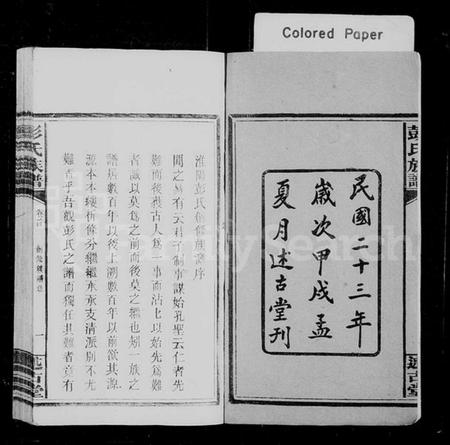 Colored Paper
彭氏族譜
民國二十三年
歲次甲戌孟
夏月述古堂刊
述古堂
淮陽彭氏創修族譜序
聞之易有云科子制事謀始孔聖云仁者先
難而後獲古人為一事而沾上以始先為難
者誠以莫為之前而後莫之繼也矧一族之
譜居數百年以後上溯數百年以前欲其源
源本本縷析條分繼繼承承支清派別不尤
難者乎吾觀彭氏之譜而獨任其難者竟有
彭氏族譜
卷之首
一
述古堂
FamilySearch